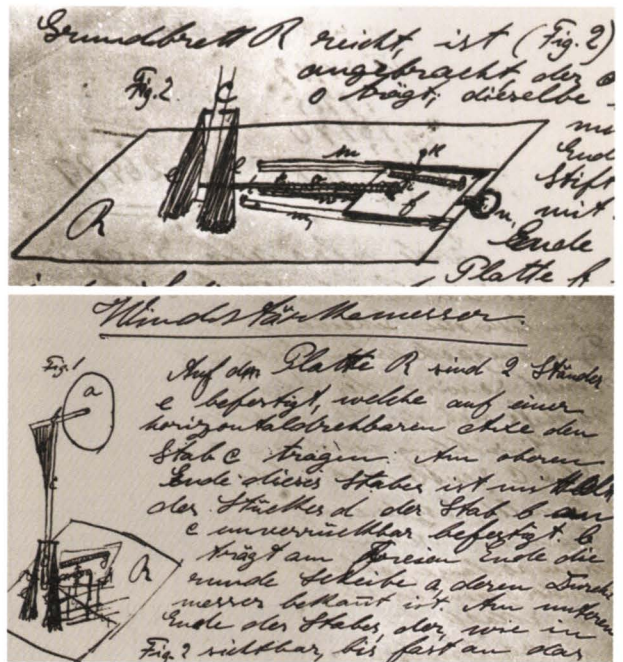 Grundbrett R reicht, ist (Fig. 2)
angebracht, der
Fig. 2. C o trägt, dieselbe
m
e m x Ende
R Stift
n mit
f Ende
Platte f
Windstärkemesser.
Fig. 1
a Auf der Platte R sind 2 Ständer
e befestigt, welche auf einer
horizontaldrehbaren Axe den
Stab c tragen. Am oberen
Ende dieses Stabes ist mittelst
des Stückes d der Stab b an
c unverrückbar befestigt. b
R trägt am freien Ende die
runde Scheibe a, deren Durch-
messer bekannt ist. Am unteren
Ende des Stabes, der, wie in
Fig. 2 sichtbar, bis fast an das